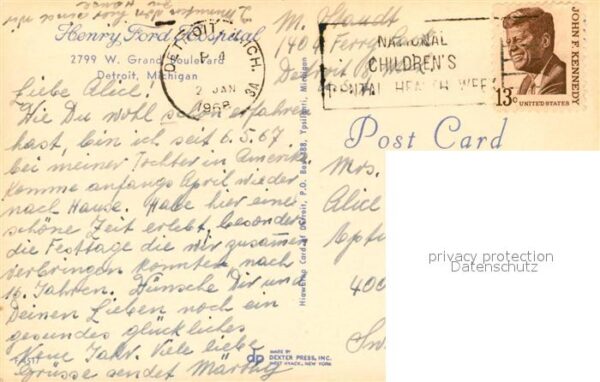 Henry Ford Hospital
2799 W. Grand Boulevard
Detroit, Michigan
Liebe Alice!
Wie Du wohl schon erfahren
hast, bin ich seit 6.5.67
bei meiner Tochter in Amerika.
Komme anfangs April wieder
nach Hause. Habe hier eine
schöne Zeit erlebt, besonders
die Festtage die wir zusammen
verbringen konnten nach
16 Jahren. Wünsche Dir und
Deinen Lieben noch ein
gesundes glückliches
Neue Jahr. Viele liebe
Grüsse sendet Märthy
M.
1404 Ferry
Detroit
DETROIT, MICH.
2 JAN
1968
NATIONAL
CHILDREN'S
DENTAL HEALTH WEEK
JOHN F. KENNEDY
13c
UNITED STATES
Post Card
Mrs.
Alice
400
privacy protection
Datenschutz
Hiawatha Card of Detroit, P.O. Box 388, Ypsilanti, Michigan
dp
MADE BY
DEXTER PRESS, INC.
WEST NYACK, NEW YORK